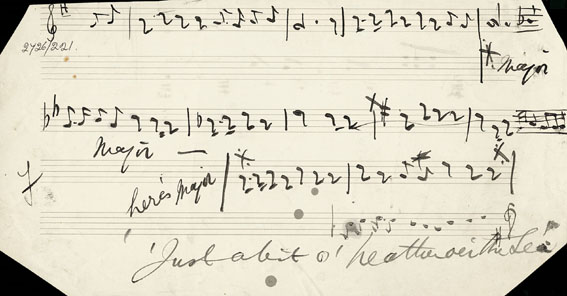 2726/2/21.
Major
Major —
here's Major
'Just a bit o' heather o'er the Sea'